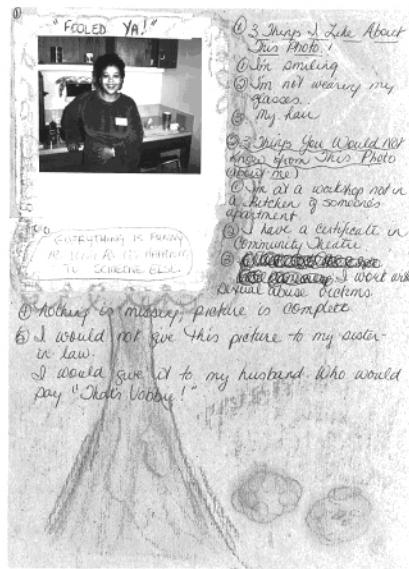 ①
"FOOLED YA!"
EVERYTHING IS FUNNY
AS LONG AS IT'S HAPPENING
TO SOMEONE ELSE.
① 3 Things I Like About
This Photo!
① I'm smiling
② I'm not wearing my
glasses.
③ My hair
② 3 Things You Would Not
Know from This Photo
About me!
① I'm at a workshop not in
a kitchen of someone's
apartment
② I have a certificate in
Community Theatre
③
I work with
sexual abuse victims
④ Nothing is missing, picture is complete
⑤ I would not give this picture to my sister-
in law.
I would give it to my husband. Who would
say "That's Vobby!"